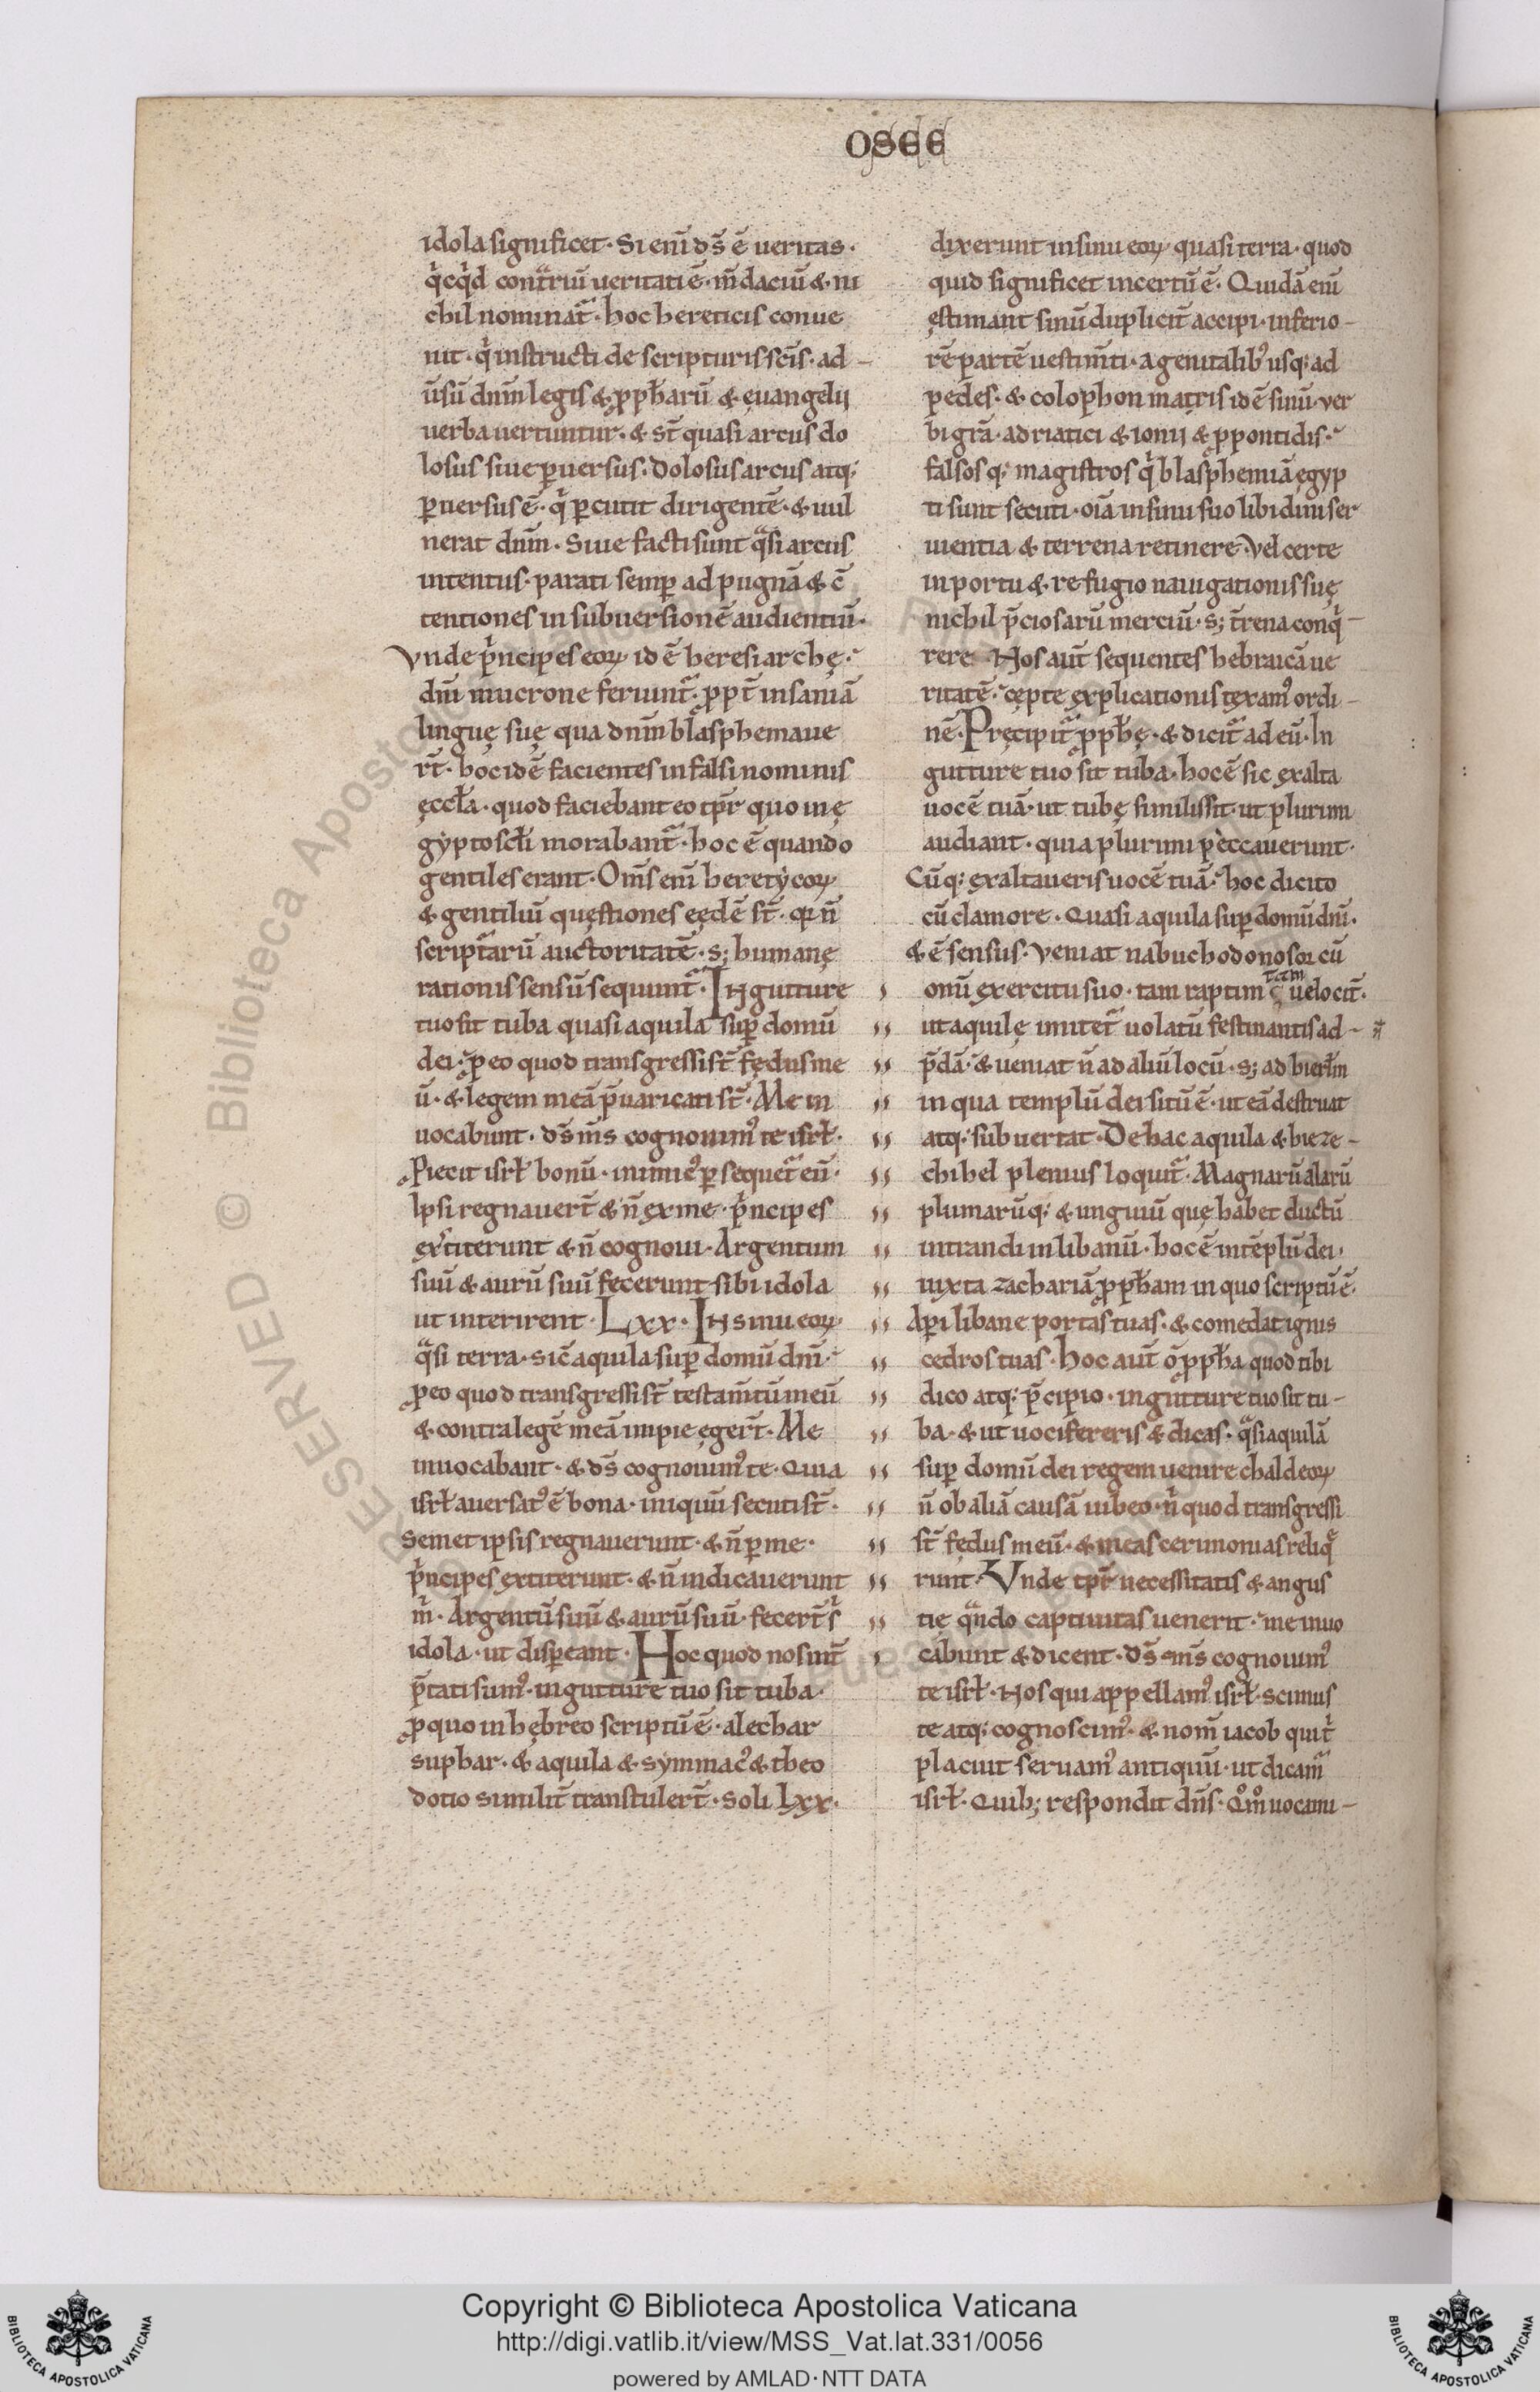 OSEE
idola significet· Si eni̅ ds̅ e̅ ueritas·
qͥcqͥd contᵃriu̅ ueritati e̅· m̅daciu̅ &· ni
chil nominat᷑· hoc hereticis conue
nit· qͥ instructi de scripturis sc̅is· ad-
u̅su̅ dn̅m legis & ꝓph̅aru̅ & ęuangelij
uerba uertuntur᷑· & st̅ quasi arcus do
losus siue ꝑuersus· Dolosus arcus atq;
ꝑuersus e̅· qͥ ꝑcutit dirigente̅· & uul
nerat dn̅m· Siue facti sunt qᵃsi arcus
intentus· parati semꝑ ad pugna̅ & c̅
tentiones in subuersione̅ audientiu̅·
Vnde pͥncipes eoꝝ id e̅ heresiarchę·
dn̅i mucrone feriunt᷑· ꝓpt̅ insania̅
linguę suę qua dn̅m blasphemaue
rt̅· hoc ide̅ facientes in falsi nominis
ęccl̅a· quod faciebant eo tp̅r quo in ę
gypto scl̅i morabant᷑· hoc e̅ quando
gentiles erant· Om̅s eni̅ heretẏcoꝝ
& gentiliu̅ quęstiones eęde̅ st̅· qr n̅
scriptᵃaru̅ auctoritate̅· s; humanę
rationis sensu̅ sequunt᷑· IN gutture
tuo sit tuba quasi aquila suꝑ domu̅
dei· ꝓ eo quod transgressi st̅ fędus me
u̅· & legem mea̅ p̅uaricati st̅· Me in
uocabunt· ds̅ m̅s cognouimꝰ te isrł·
Piecit isrł bonu̅· inimicꝰ ꝑsequet᷑ eu̅·
Ipsi regnauert̅ & n̅ ex me· pͥncipes
extiterunt & n̅ cognoui· Argentum
suu̅ & auru̅ suu̅ fecerunt sibi idola
ut interirent· Lxx· IN sinu eoꝝ·
qᵃsi terra· sic̅ aquila suꝑ domu̅ dn̅i·
ꝓ eo quod transgressi st̅ testam̅tu̅ meu̅
& contra lege̅ mea̅ impie ęgert̅· Me
inuocabant· & ds̅ cognouimꝰ te· Quia
isrł auersatꝰ e̅ bona· iniquu̅ secuti st̅·
Semet ipsis regnauerunt· & n̅ ꝑ me·
pͥncipes extiterunt· & n̅ indicauerunt
m̅· Argentu̅ suu̅ & auru̅ suu̅· fecert̅ sͥ
idola· ut disꝑeant· Hoc quod nos int̅
p̅tati sumꝰ· in gutture tuo sit tuba·
ꝓ quo in hębreo scriptu̅ e̅· alechar
suphar· & aquila & symmacꝰ & theo
dotio similit̅ transtulert̅· soli Lxx·
dixerunt in sinu eoꝝ· quasi terra· quod
quid significet incertu̅ e̅· Quida̅ eni̅
ęstimant sinu̅ duplicit̅ accipi· inferio-
re̅ parte̅ uestim̅ti· a genitalibꝰ usq; ad
pedes· & colophon matris id e̅ sinu̅· ver
bi gra̅· adriatici & ionij & ꝓpontidis·
falsosq; magistros qͥ blasphemia̅ ęgyp
ti sunt secuti· oi̅a in sinu suo libidini ser
uientia & terrena retinere· Vel certe
in portu &· refugio nauigationis suę
nichil p̅ciosaru̅ merciu̅· s; t̅rena conqͥ-
rere· Nos aut̅ sequentes hebraica̅ ue
ritate̅· cępte explicationis texamꝰ ordi-
ne̅· Pręcipit᷑ ꝓph̅ę· & dicit᷑ ad eu̅· In
gutture tuo sit tuba· hoc e̅ sic exalta
uoce̅ tua̅· ut tubę similis sit· ut plurimi
audiant· quia plurimi peccauerunt·
Cu̅q; exaltaueris uoce̅ tua̅· hoc dicito
cu̅ clamore· Quasi aquila suꝑ domu̅ dn̅i·
& e̅ sensus· Veniat nabuchodonosor cu̅
tam
om̅i exercitu suo· tam raptim uelocit̅·
ut aquilę imitet᷑ uolatu̅ festinantis ad-
p̅da̅· & ueniat n̅ ad aliu̅ locu̅· s; ad hierl̅m
in qua templu̅ dei situ̅ e̅· ut ea̅ destruat
atq; subuertat· De hac aquila & hieze-
chihel plenius loquit᷑· Magnaru̅ alaru̅
plumaru̅q; & unguiu̅ quę habet ductu̅
intrandi in libanu̅· hoc e̅ in te̅plu̅ dei·
iuxta zacharia̅ ꝓph̅am in quo scriptu̅ e̅·
Aꝑi libane portas tuas· & comedat ignis
cedros tuas· Hoc aut̅ o̅ ꝓph̅a quod tibi
dico atq; p̅cipio· in gutture tuo sit tu-
ba· & ut uocifereris & dicas· qᵃsi aquila̅
suꝑ domu̅ dei regem uenire chaldeoꝝ
n̅ ob alia̅ causa̅ iubeo· nͥ quod transgressi
st̅ fędus meu̅· & meas cerimonias reliq̅
runt· Vnde tp̅r necessitatis & angus
tię qᵃndo captiuitas uenerit· me inuo
cabunt & dicent· ds̅ m̅s cognouimꝰ
te isrł· Nos qui appellamꝰ isrł· scimus
te atq; cognoscimꝰ· & nom̅ iacob quit̅
placuit seruamꝰ antiquu̅· ut dicam᷑
isrł· Quib; respondit dn̅s· Qͦmͦ uocaui-
Copyright © Biblioteca Apostolica Vaticana
http://digi.vatlib.it/view/MSS_Vat.lat.331/0056
powered by AMLAD·NTT DATA
BIBLIOTECA APOSTOLICA VATICANA
BIBLIOTECA APOSTOLICA VATICANA